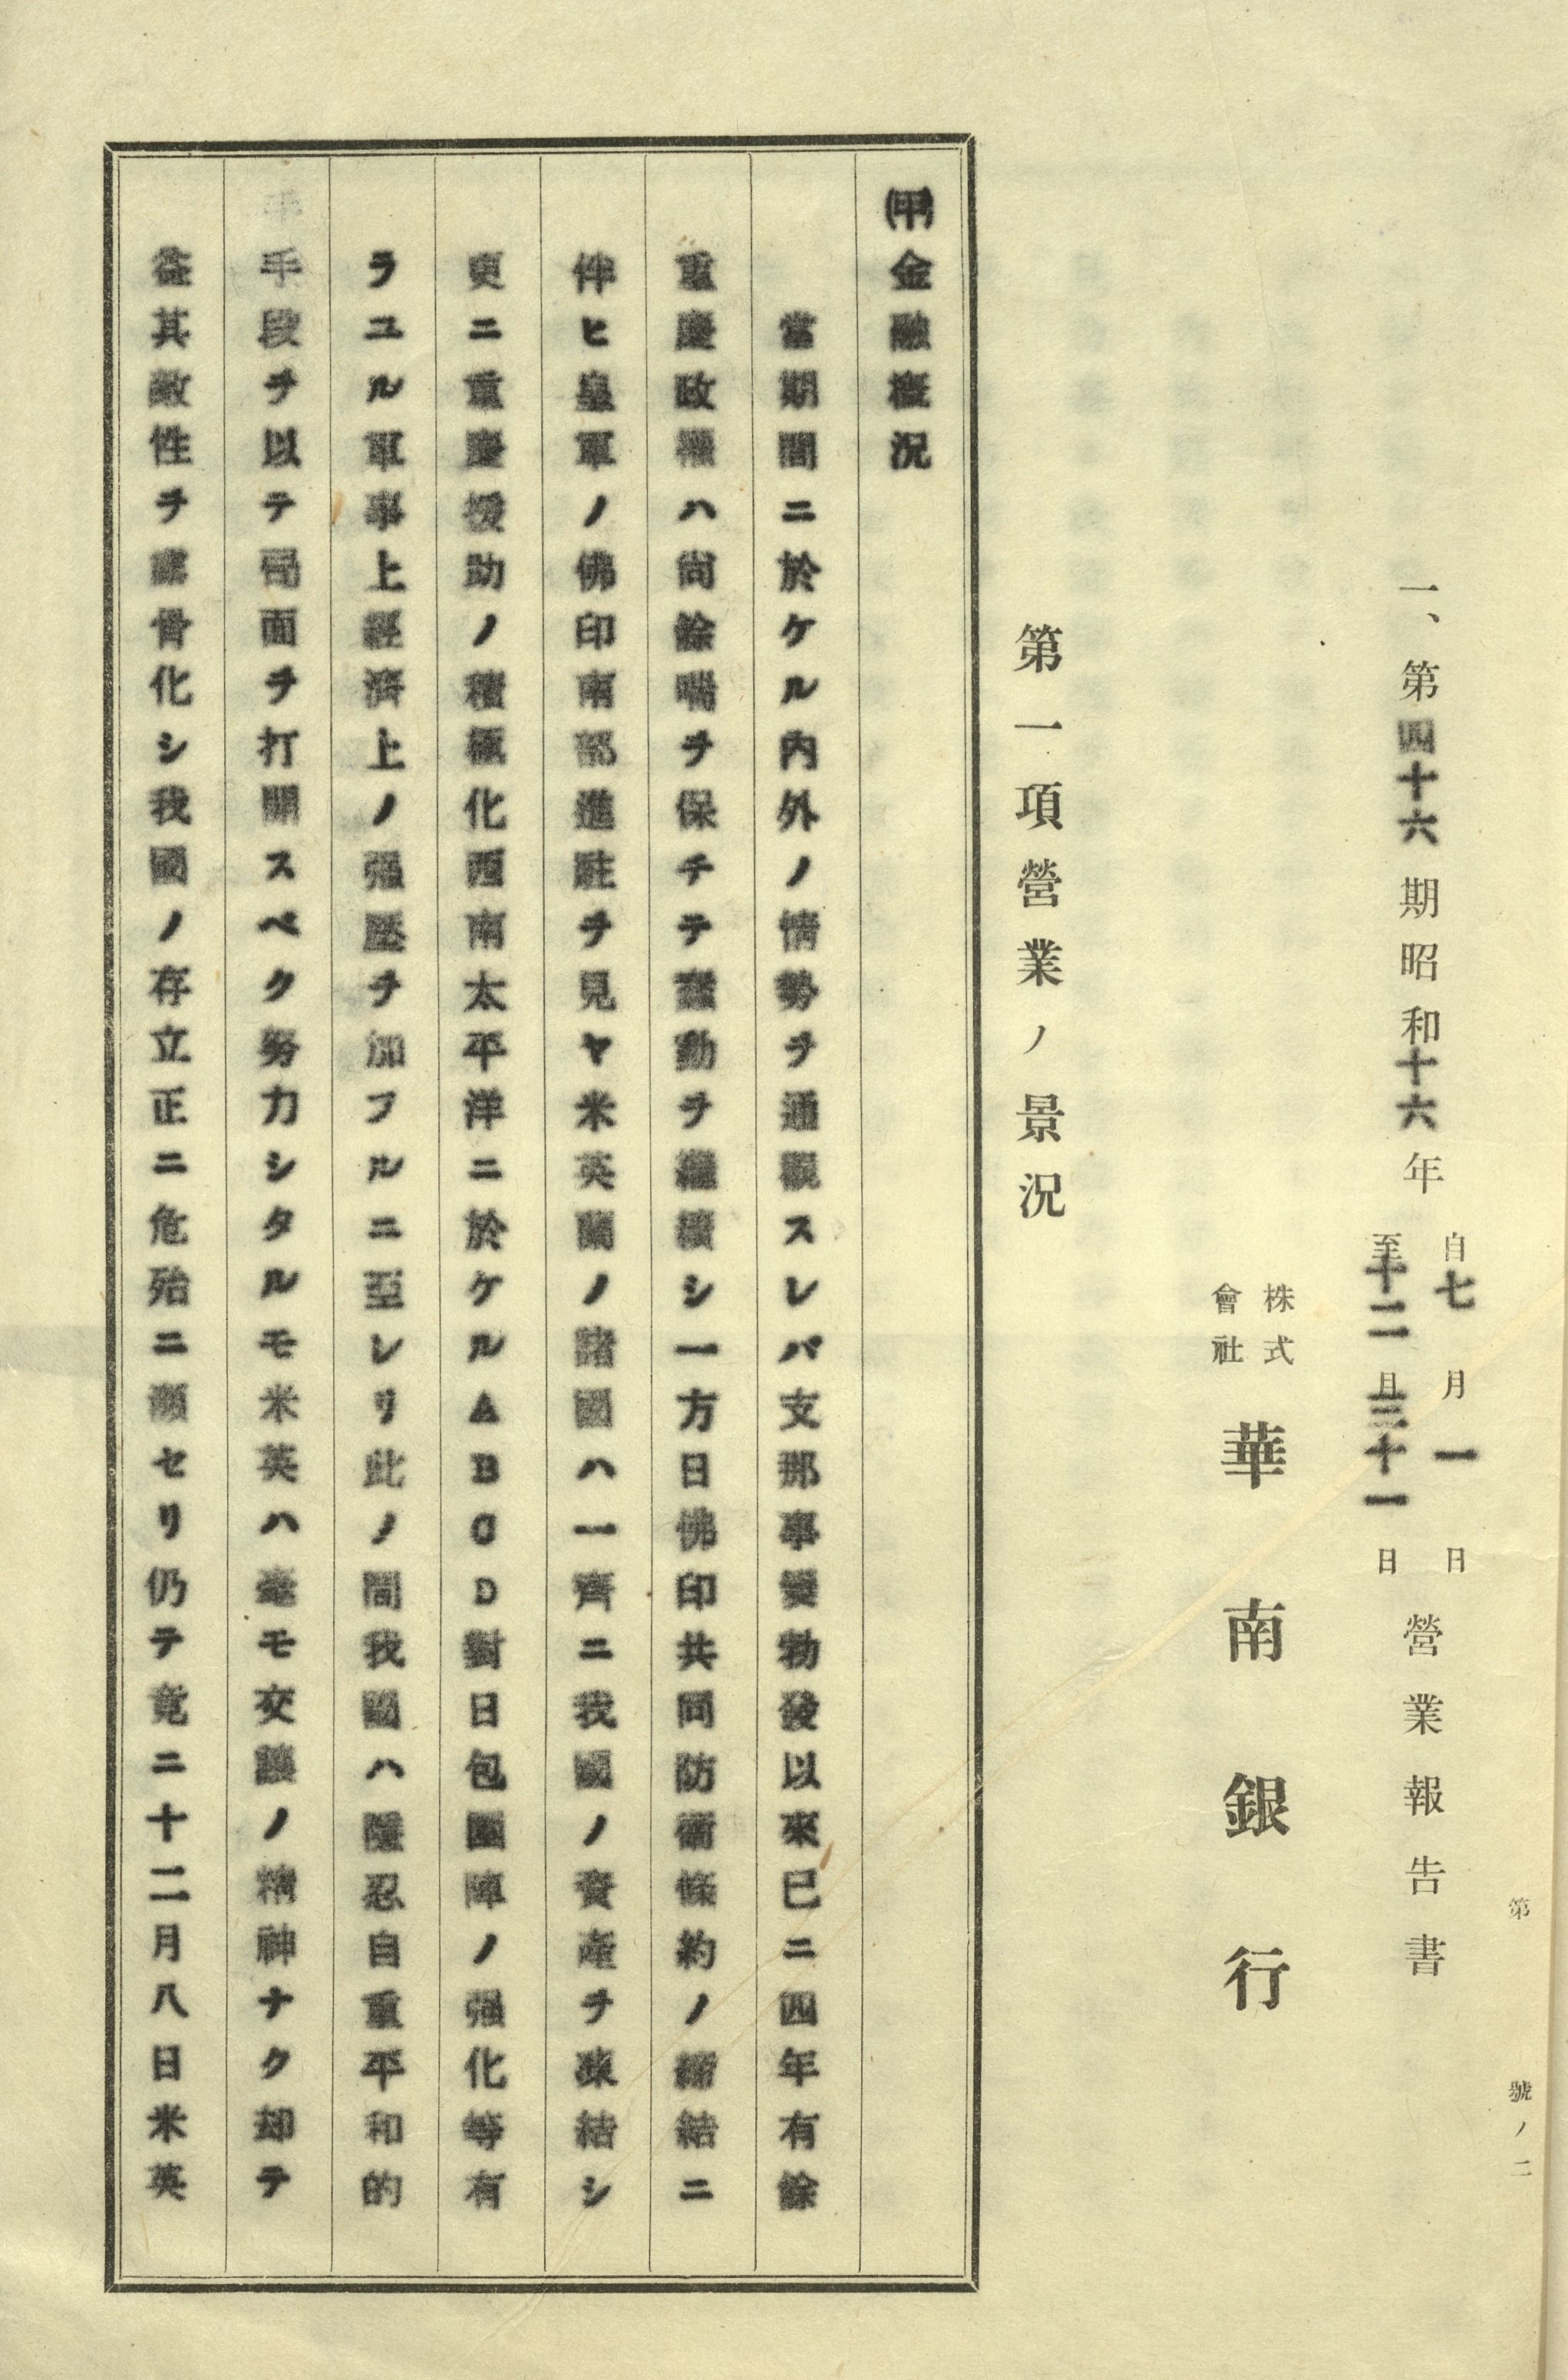 第　號ノ二
一、第四十六期昭和十六年自七月一日至十二月三十一日營業報告書
株式會社華南銀行
第一項營業ノ景況
(甲)金融槪況
當期間ニ於ケル內外ノ情勢ヲ通觀スレバ支那事變勃發以來已ニ四年有餘
重慶政權ハ尙餘喘ヲ保チテ蠢動ヲ繼續シ一方日佛印共同防衞條約ノ締結ニ
伴ヒ皇軍ノ佛印南部進駐ヲ見ヤ米英蘭ノ諸國ハ一齊ニ我國ノ資產ヲ凍結シ
更ニ重慶援助ノ積極化西南太平洋ニ於ケルABCD對日包圍陣ノ强化等有
ラユル軍事上經濟上ノ强壓ヲ加フルニ至レリ此ノ間我國ハ隱忍自重平和的
手段ヲ以テ局面ヲ打開スベク努力シタルモ米英ハ毫モ交讓ノ精神ナク却テ
益其敵性ヲ露骨化シ我國ノ存立正ニ危殆ニ瀕セリ仍テ竟ニ十二月八日米英